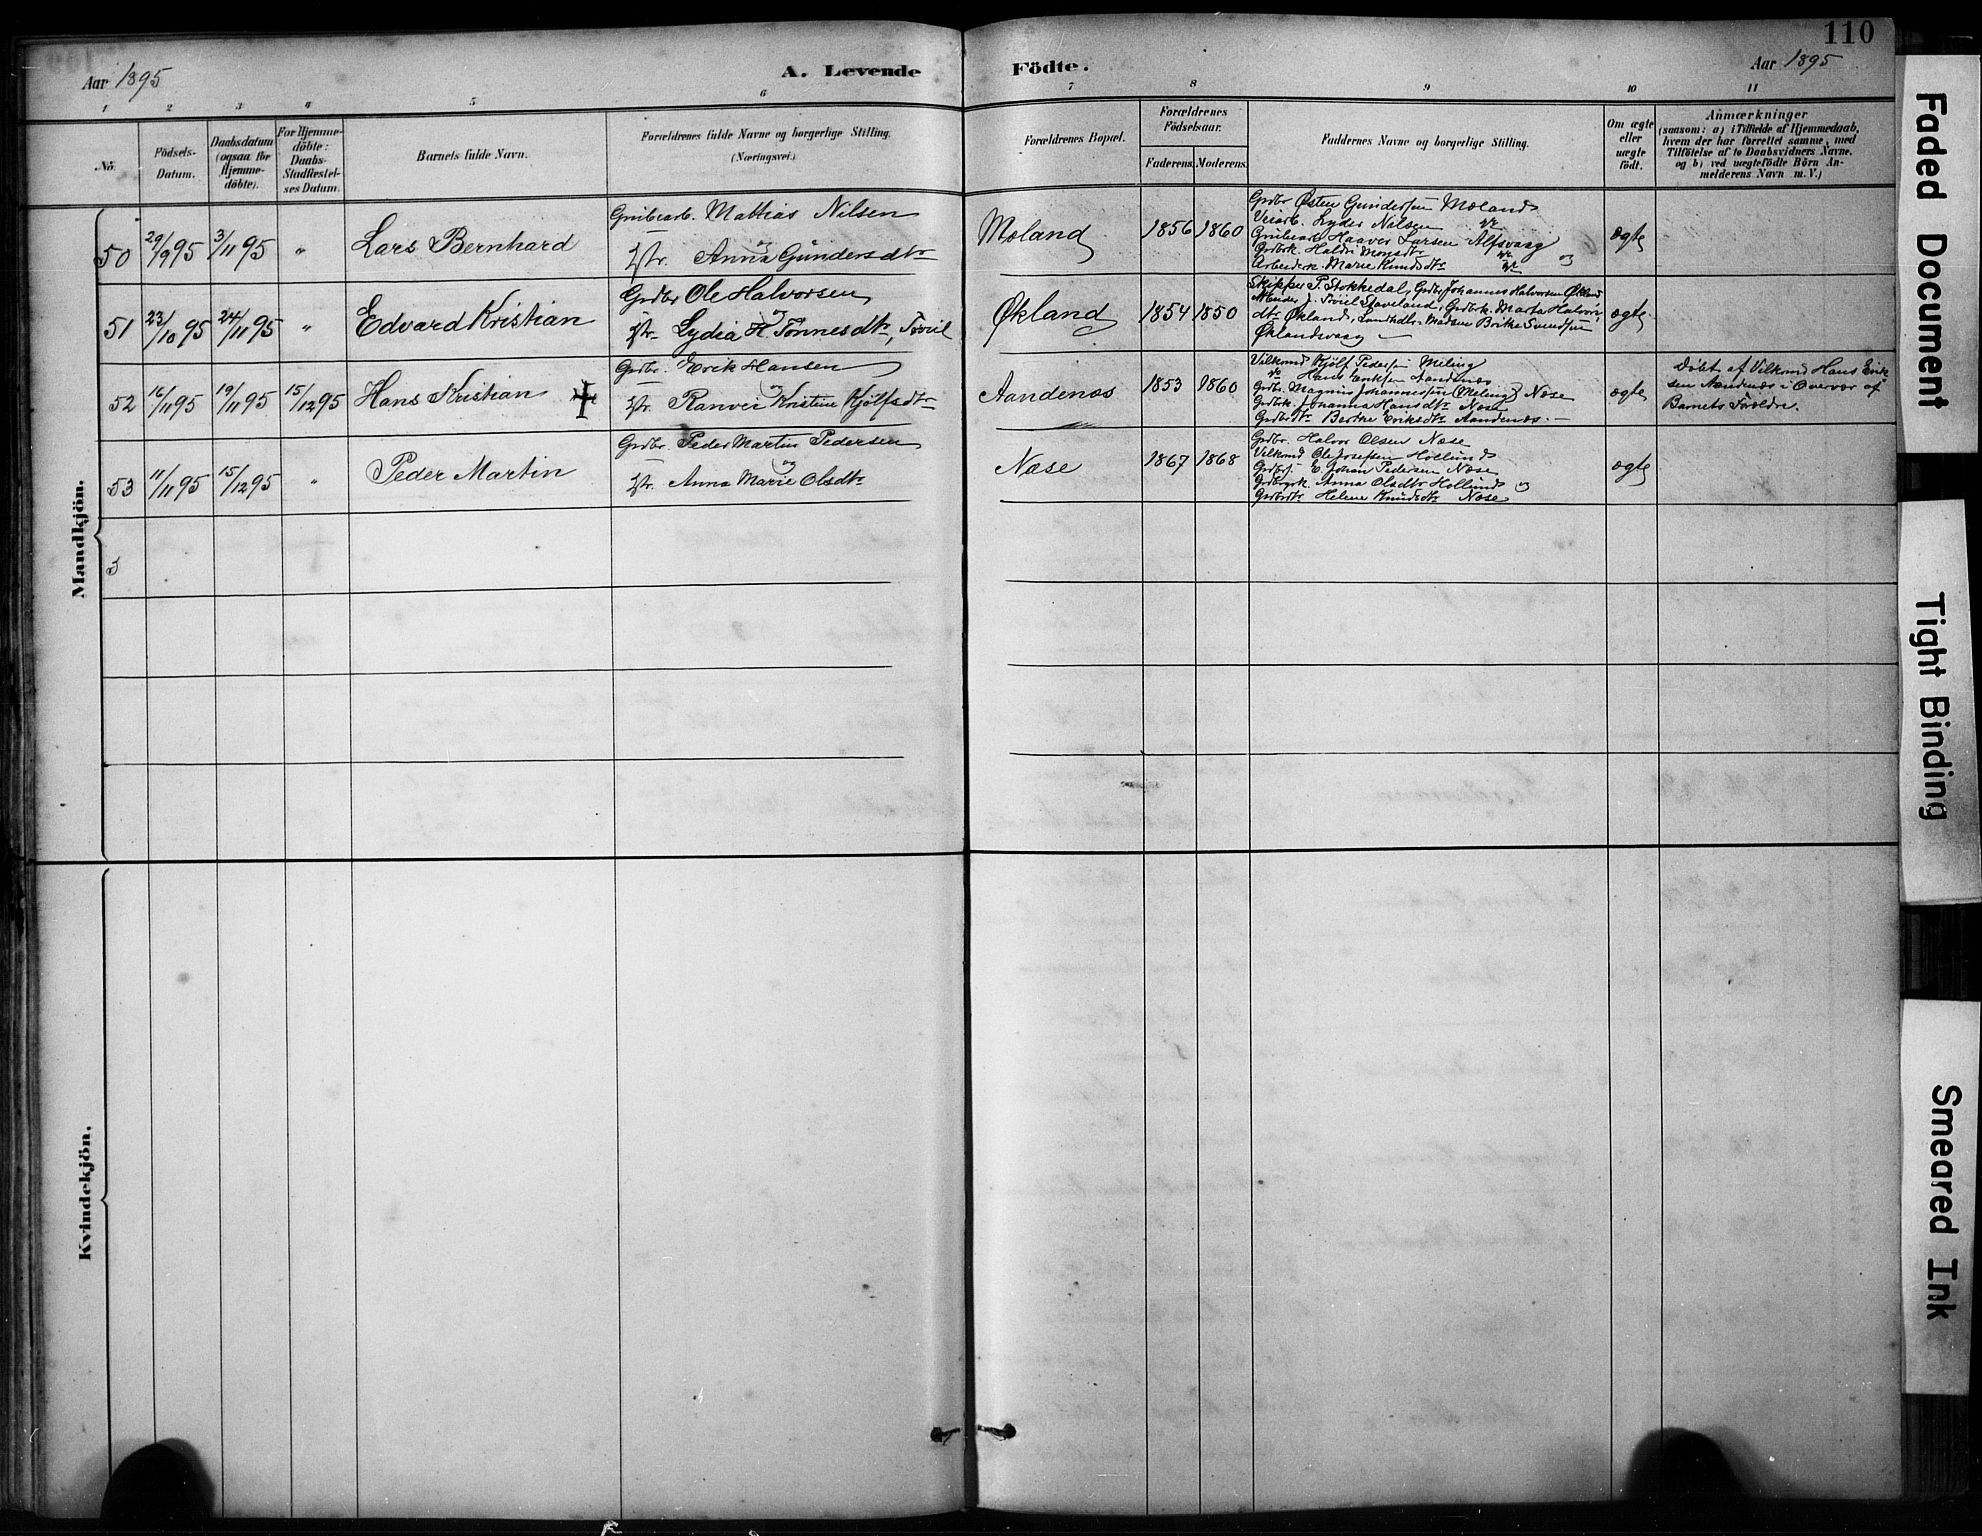 110
Aar 1895
A. Levende Födte.
Aar 1895
1 2 3 4 5 6 7 8 9 10 11
No.
Födsels-
Datum.
Daabsdatum
(ogsaa for
Hjemme-
döbte).
For Hjemme-
döbte:
Daabs-
Stadfæstel-
ses Datum.
Barnets fulde Navn.
Forældrenes fulde Navne og borgerlige Stilling.
(Næringsvei.)
Forældrenes Bopæl.
Forældrenes
Födselsaar.
Faderens. Moderens.
Faddernes Navne og borgerlige Stilling.
Om ægte
eller
uægte
født.
Anmærkninger
(saasom: a) i Tilfælde af Hjemmedaab,
hvem der har forrettet samme, med
Tilföielse af to Daabsvidners Navne.
og b) ved uægtefödte Börn An-
melderens Navn m. V.)
Mandkjön.
50 29/9 95 3/11 95 " Lars Bernhard
Grubearb. Mattias Nilsen
og
Hstr. Anna Gundersdtr
Moland 1856 1860
Grdbr Østen Gundersen Mæland
Veiarb. Lyder Nilsen
Grubearb Haaver Larsen Alfsvaag
Arbeiderk. Marie Knudsdtr
ægte
51 23/10 95 24/11 95 " Edvard Kristian
Grdbr Ole Halvorsen
og
Hstr. Lydia H Tönnesdtr, Tvöil
Økland 1854 1850
Skipper P. Stokkedal, Grdbr Johannes Halvorsen Økland
dtr Økland, Landhdlr. Madam Berthe Svendsen
Øklandsvaag
ægte
52 16/11 95 19/11 95 15/12 95 Hans Kristian
Grdbr. Erik Hansen
og
Hstr. Ranvei Kristine Kjölfsdtr
Aandenæs 1853 1860
Ungkmd Kjölf Pedersen Meling
Hans Eriksen Aandenæs
Grdbr. Magnus Johannessen (Meling) Næse
Grdbrk. Johanna Hansdtr Næse
Grdbrdtr Berthe Eriksdtr Aandenæs.
ægte
Döbt af Ungkmd Hans Erik
sen Aandenæs i Overvær af
Barnets Forældre.
53 11/11 95 15/12 95 " Peder Martin
Grdbr. Peder Martin Pedersen
og
Hstr. Anna Marie Olsdtr
Næse 1867 1868
Grdbr. Halvor Olsen Næse
Ungkmd Ole Josefsen Hollund
Grdbr E. Johan Pedersen Næse
Anna Olsdtr Hollund og
Grdbrdtr Helene Knudsdtr Næse
ægte
5
Kvindekjön.
Faded Document
Tight Binding
Smeared Ink